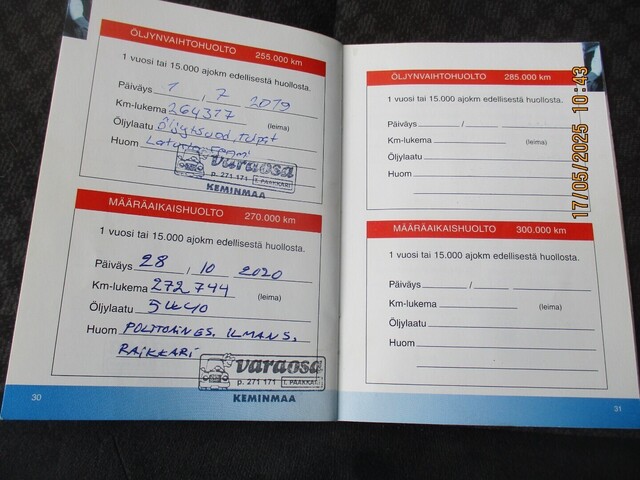 ÖLJYNVAIHTOHUOLTO 255.000 km
1 vuosi tai 15.000 ajokm edellisestä huollosta.
Päiväys 1 / 7 2019
Km-lukema 264377 (leima)
Öljylaatu
Huom
varaosa
p. 271 171 T. PÄÄKKÄRI
KEMINMAA
MÄÄRÄAIKAISHUOLTO 270.000 km
1 vuosi tai 15.000 ajokm edellisestä huollosta.
Päiväys 28 / 10 2020
Km-lukema 272744 (leima)
Öljylaatu 5W40
Huom POLTTOAINES, ILMANS,
RAIKKARI
varaosa
p. 271 171 T. PÄÄKKÄRI
KEMINMAA
30
ÖLJYNVAIHTOHUOLTO 285.000 km
1 vuosi tai 15.000 ajokm edellisestä huollosta.
Päiväys /
Km-lukema (leima)
Öljylaatu
Huom
MÄÄRÄAIKAISHUOLTO 300.000 km
1 vuosi tai 15.000 ajokm edellisestä huollosta.
Päiväys /
Km-lukema (leima)
Öljylaatu
Huom
31
17/05/2025 10:43